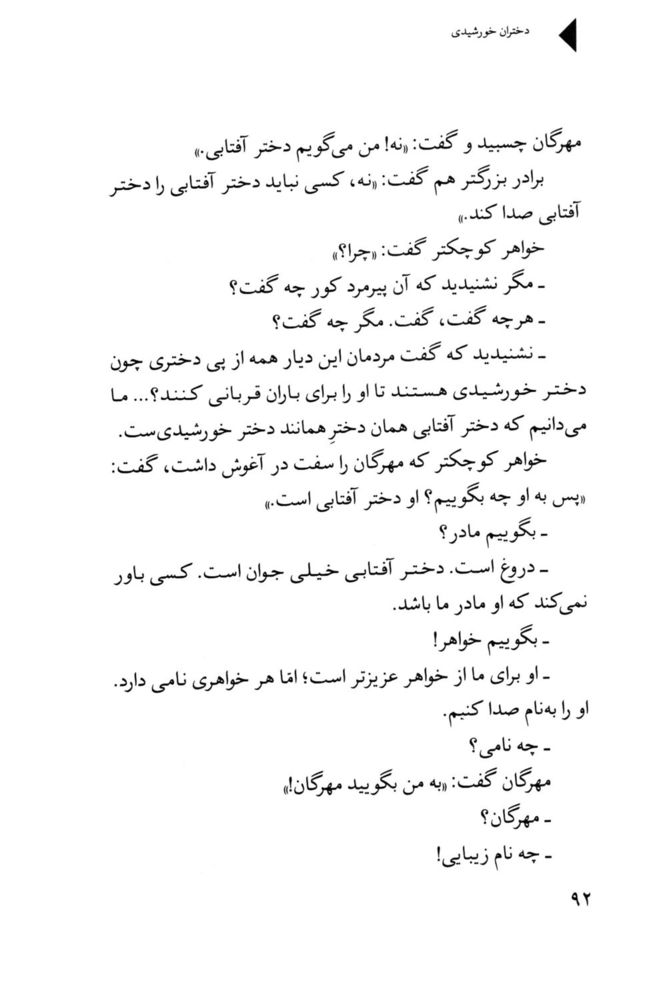 دختران خورشیدی
مهرگان چسبید و گفت: «نه! من می‌گویم دختر آفتابی.»
برادر بزرگتر هم گفت: «نه، کسی نباید دختر آفتابی را دختر
آفتابی صدا کند.»
خواهر کوچکتر گفت: «چرا؟»
ـ مگر نشنیدید که آن پیرمرد کور چه گفت؟
ـ هرچه گفت، گفت. مگر چه گفت؟
ـ نشنیدید که گفت مردمان این دیار همه از پی دختری چون
دختر خورشیدی هستند تا او را برای باران قربانی کنند؟... ما
می‌دانیم که دختر آفتابی همان دخترِ همانند دختر خورشیدی‌ست.
خواهر کوچکتر که مهرگان را سفت در آغوش داشت، گفت:
«پس به او چه بگوییم؟ او دختر آفتابی است.»
ـ بگوییم مادر؟
ـ دروغ است. دختر آفتابی خیلی جوان است. کسی باور
نمی‌کند که او مادر ما باشد.
ـ بگوییم خواهر!
ـ او برای ما از خواهر عزیزتر است؛ امّا هر خواهری نامی دارد.
او را به‌نام صدا کنیم.
ـ چه نامی؟
مهرگان گفت: «به من بگویید مهرگان!»
ـ مهرگان؟
ـ چه نام زیبایی!
۹۲